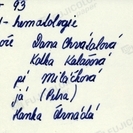 93
- hematologie
Dana Chvátalová
Katka Kalašová
pí Mitáčková
já (Petra)
Hanka Chrnádá